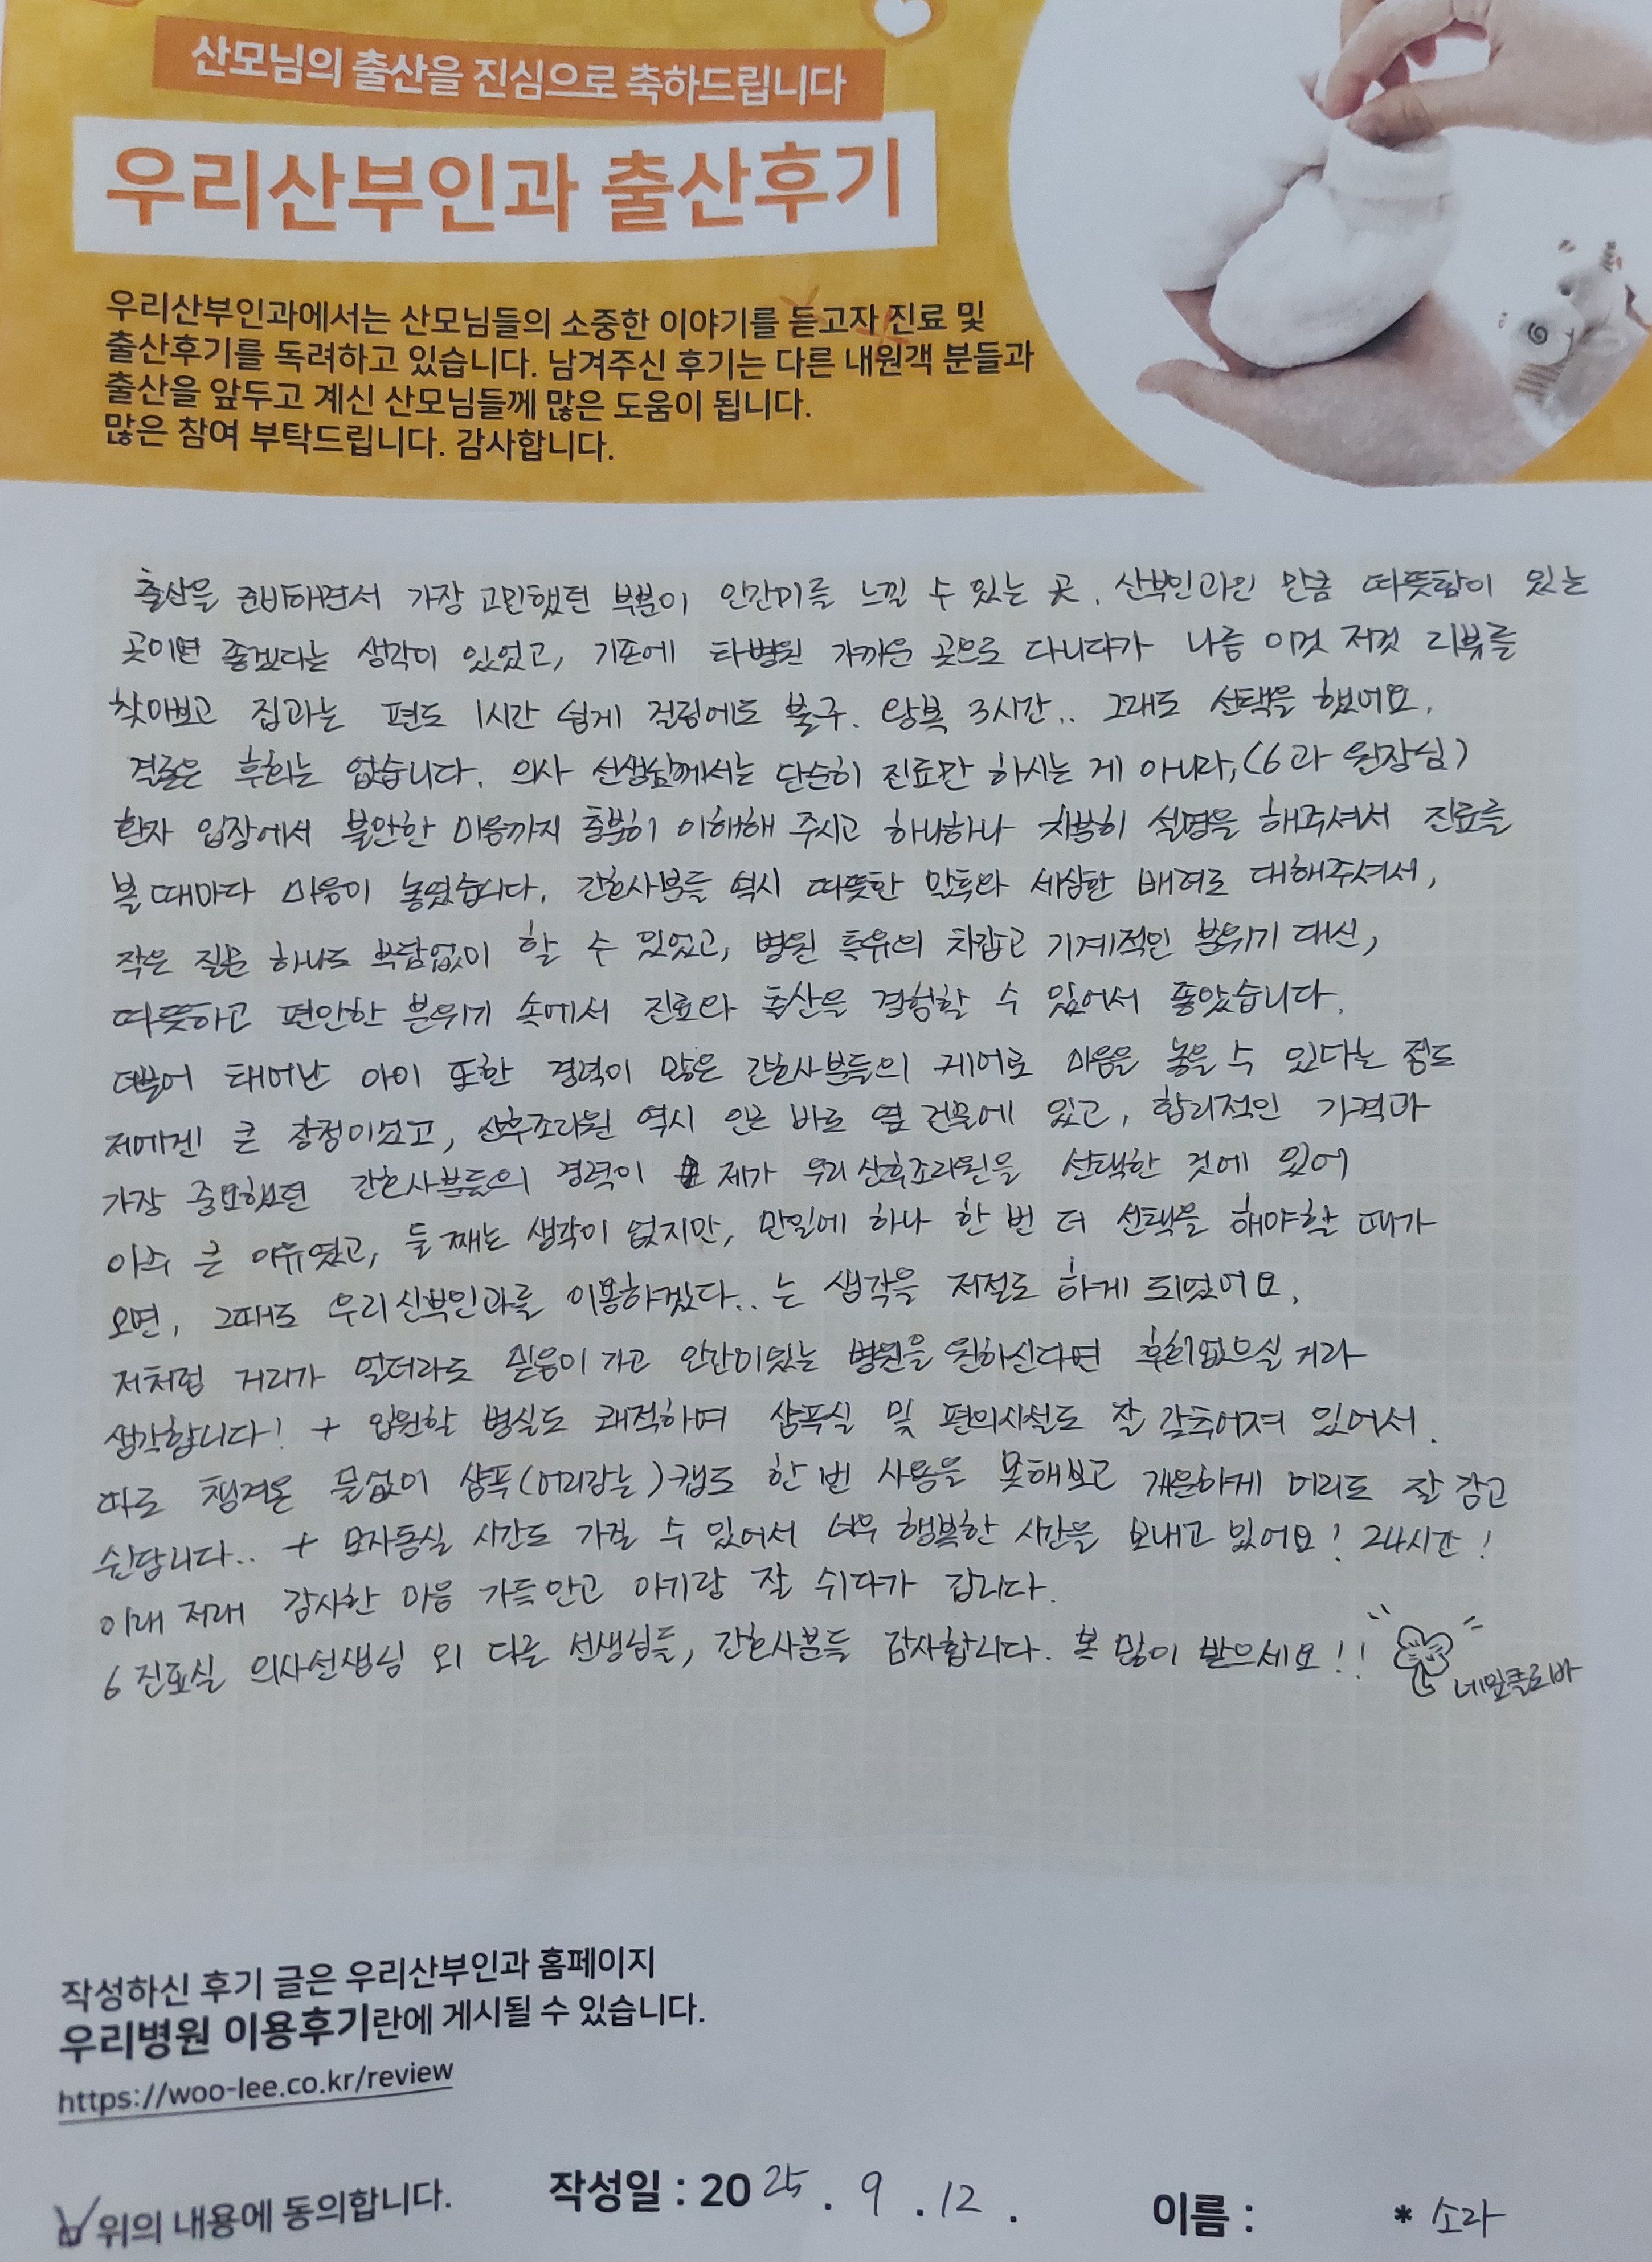 산모님의 출산을 진심으로 축하드립니다
우리산부인과 출산후기
우리산부인과에서는 산모님들의 소중한 이야기를 듣고자 진료 및
출산후기를 독려하고 있습니다. 남겨주신 후기는 다른 내원객 분들과
출산을 앞두고 계신 산모님들께 많은 도움이 됩니다.
많은 참여 부탁드립니다. 감사합니다.
출산을 준비하면서 가장 고민했던 부분이 인간미를 느낄 수 있는 곳. 산부인과인 만큼 따뜻함이 있는
곳이면 좋겠다는 생각이 있었고, 기존에 타병원 가까운 곳으로 다니다가 나름 이것 저것 리뷰를
찾아보고 집과는 편도 1시간 쉽게 걸림에도 불구. 왕복 3시간.. 그래도 선택을 했어요.
결론은 후회는 없습니다. 의사 선생님께서는 단순히 진료만 하시는 게 아니라, (6과 원장님)
환자 입장에서 불안한 마음까지 충분히 이해해 주시고 하나하나 차분히 설명을 해주셔서 진료를
볼 때마다 마음이 놓였습니다. 간호사분들 역시 따뜻한 말투와 세심한 배려로 대해주셔서,
작은 질문 하나도 부담없이 할 수 있었고, 병원 특유의 차갑고 기계적인 분위기 대신,
따뜻하고 편안한 분위기 속에서 진료와 출산을 경험할 수 있어서 좋았습니다.
더불어 태어난 아이 또한 경력이 많은 간호사분들의 케어로 마음을 놓을 수 있다는 점도
저에겐 큰 장점이었고, 산후조리원 역시 인근 바로 옆 건물에 있고, 합리적인 가격과
가장 중요했던 간호사분들의 경력이 제가 우리 산후조리원을 선택한 것에 있어
아주 큰 이유였고, 둘째는 생각이 없지만, 만일에 하나 한 번 더 선택을 해야할 때가
오면, 그때도 우리산부인과를 이용하겠다.. 는 생각을 저절로 하게 되었어요.
저처럼 거리가 멀더라도 믿음이 가고 인간미있는 병원을 원하신다면 후회없으실 거라
생각합니다! + 입원할 병실도 쾌적하며 샴푸실 및 편의시설도 잘 갖추어져 있어서.
따로 챙겨온 물없이 샴푸(머리감는)캡도 한 번 사용을 못해보고 개운하게 머리도 잘 감고
쉰답니다.. + 모자동실 시간도 가질 수 있어서 너무 행복한 시간을 보내고 있어요! 24시간!
이래 저래 감사한 마음 가득안고 아기랑 잘 쉬다가 갑니다.
6 진료실 의사선생님 외 다른 선생님들, 간호사분들 감사합니다. 복 많이 받으세요!!
네잎클로바
작성하신 후기 글은 우리산부인과 홈페이지
우리병원 이용후기란에 게시될 수 있습니다.
https://woo-lee.co.kr/review
위의 내용에 동의합니다. 작성일 : 2025 . 9 . 12 . 이름 : * 소라